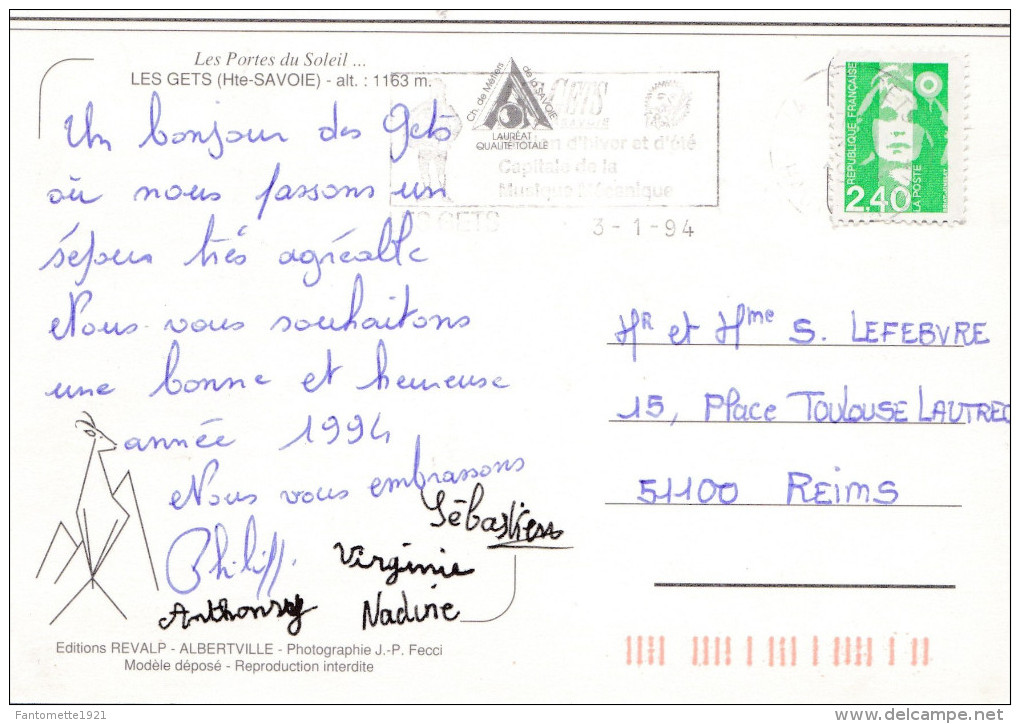 Les Portes du Soleil ...
LES GETS (Hte-SAVOIE) - alt. : 1163 m.
Un bonjour des Gets
où nous passons un
séjour très agréable
Nous vous souhaitons
une bonne et heureuse
année 1994
Nous vous embrassons
Sébastien
Philipp.
Virginie
Anthony
Nadine
Editions REVALP - ALBERTVILLE - Photographie J.-P. Fecci
Modèle déposé - Reproduction interdite
Ch. de Métiers de la SAVOIE
LAURÉAT
QUALITÉ TOTALE
GETS
d'hiver et d'été
Capitale de la
Musique Mécanique
LES GETS
3-1-94
REPUBLIQUE FRANÇAISE
2.40
LA POSTE
Mr et Mme S. LEFEBVRE
15, Place TOULOUSE LAUTREC
51100 REIMS
Fantomette1921
delcampe.net